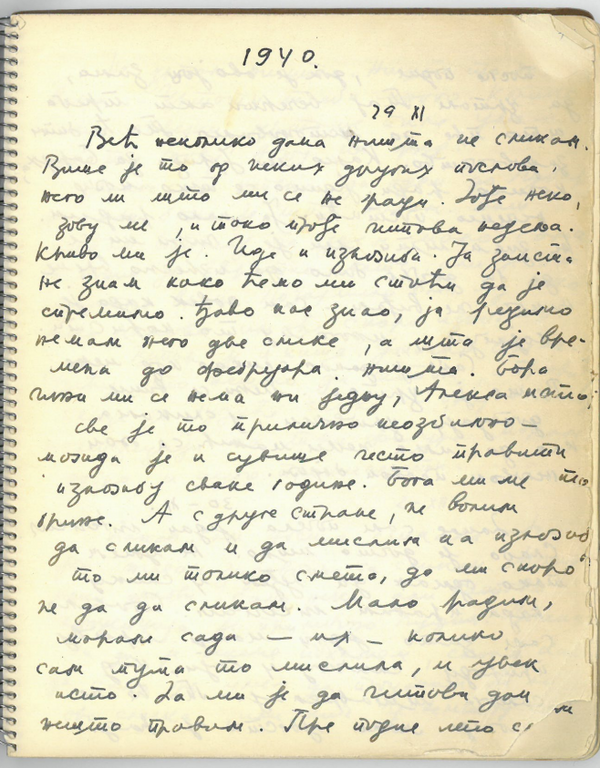 1940.
29 XI
Већ неколико дана ништа не сликам.
Више је то од неких других послова.
него ли што ми се не ради. Дође неко,
зову ме, и тако прође читава недеља.
Криво ми је. Иде и изложба. Ја заиста
не знам како ћемо ми стићи да је
спремимо. Ђаво нас знао, ја једино
немам него две слике, а шта је вре-
мена до фебруара, ништа. Бора
ми се нема ни једну, Алекса исто
све је то прилично неозбиљно —
можда је и сувише често правити
изложбу сваке године. Бога ми ме
брине. А с друге стране, не волим
да сликам и да мислим на изложбу
то ми толико смета, да ми скоро
не да да сликам. Мало радим,
морам сада — их — колико
сам пута то мислила, и увек
исто. За ми је да читави дан
нешто правам. Пре подне лепо